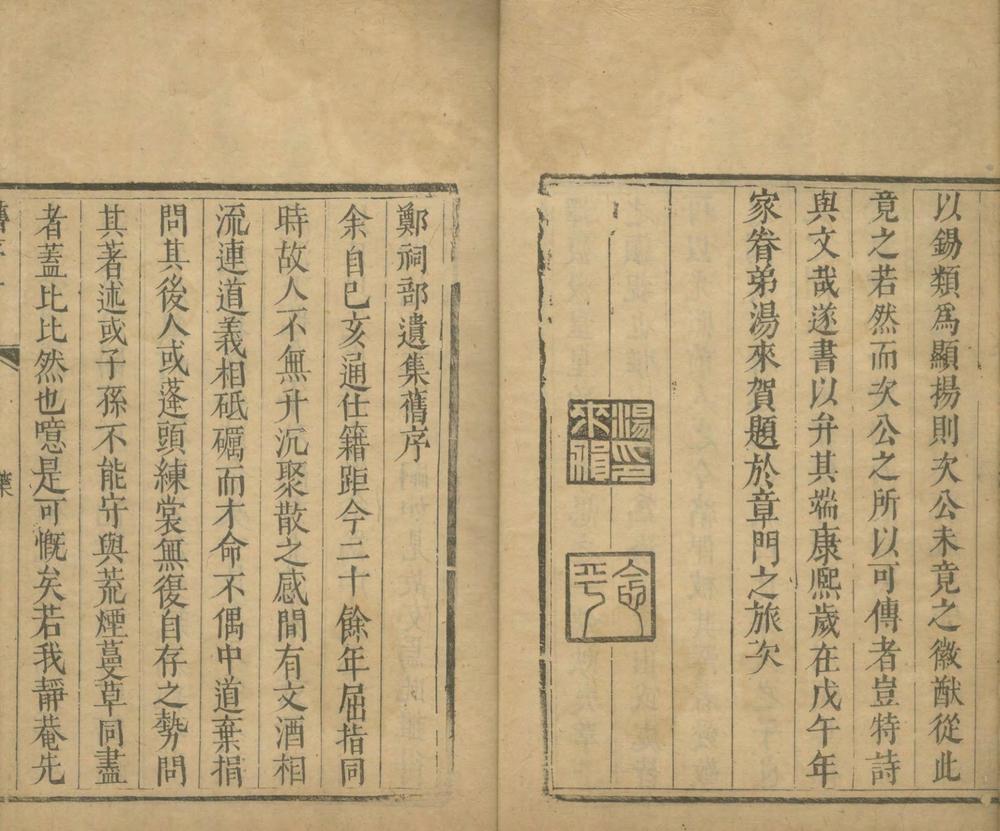 以錫類爲顯揚則次公未竟之徽猷從此
竟之若然而次公之所以可傳者豈特詩
與文哉遂書以弁其端康熙歲在戊午年
家眷弟湯來賀題於章門之旅次
湯印
來賀
念平
鄭祠部遺集舊序
余自己亥通仕籍距今二十餘年屈指同
時故人不無升沉聚散之感間有文酒相
流連道義相砥礪而才命不偶中道棄捐
問其後人或蓬頭練裳無復自存之勢問
其著述或子孫不能守與荒煙蔓草同盡
者蓋比比然也噫是可慨矣若我靜菴先